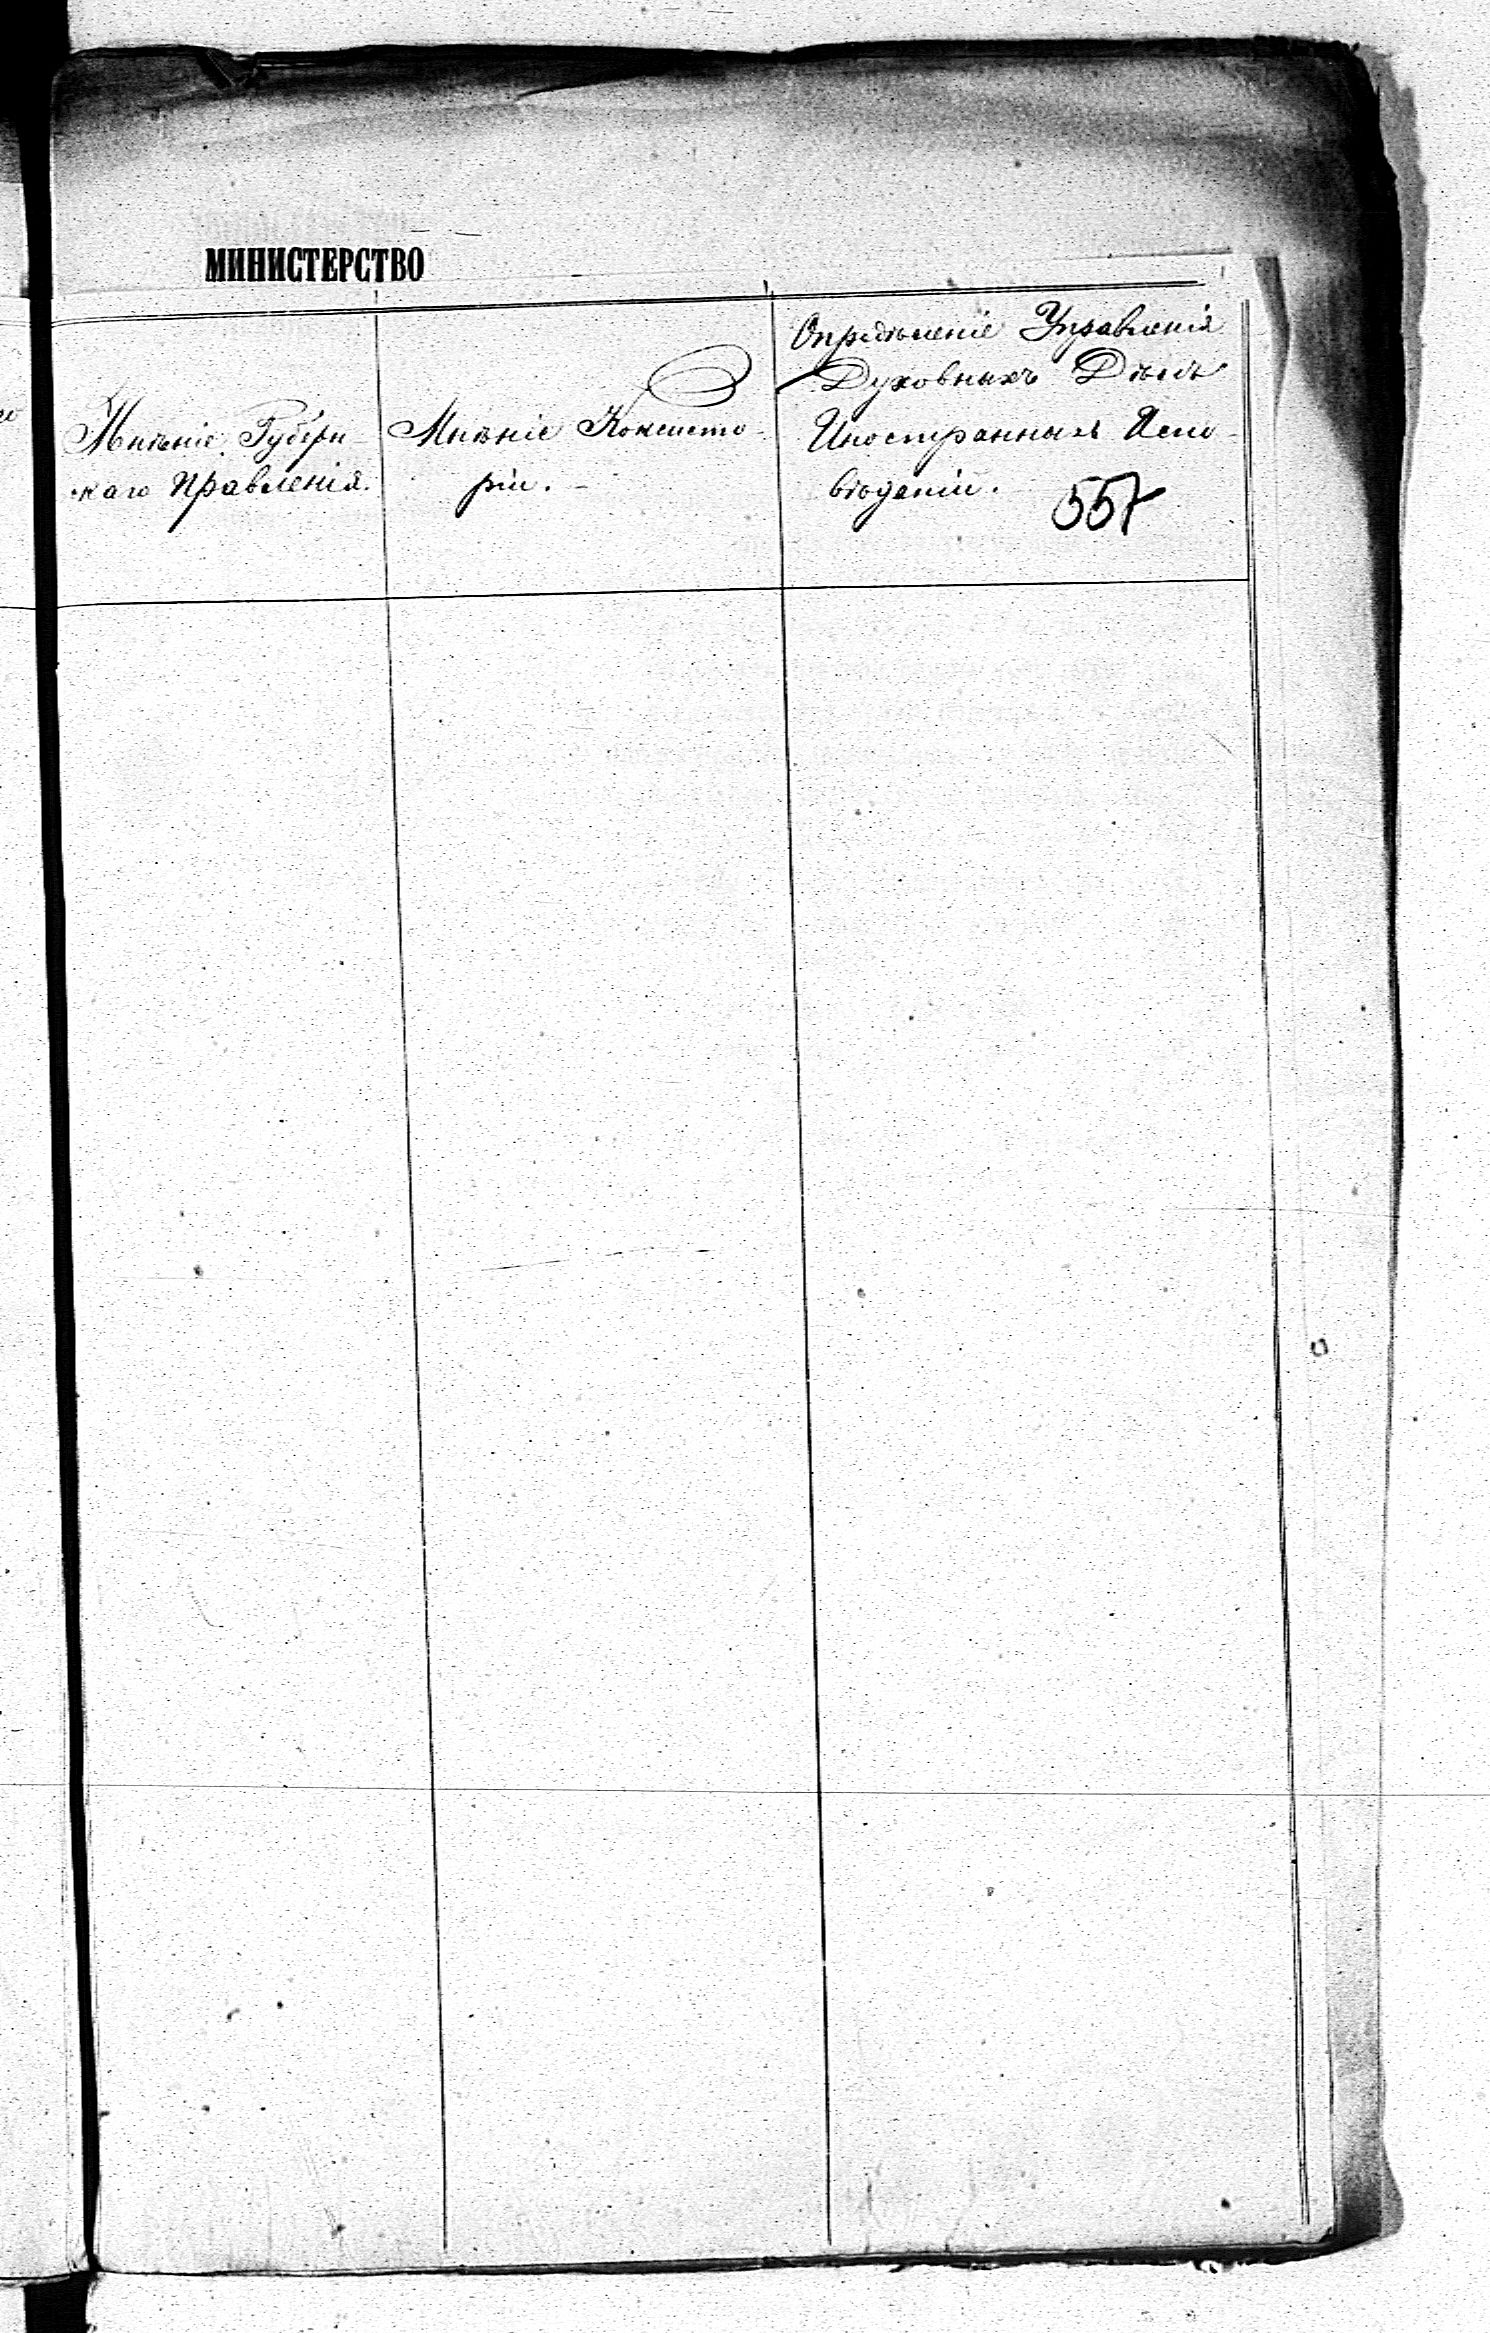 МИНИСТЕРСТВО
Мнѣніе Губерн-
скаго Правленія.
Мнѣніе Консисто-
ріи.
Опредѣленіе Управленія
Духовныхъ Дѣлъ
Иностранныхъ Испо-
вѣданій.
557